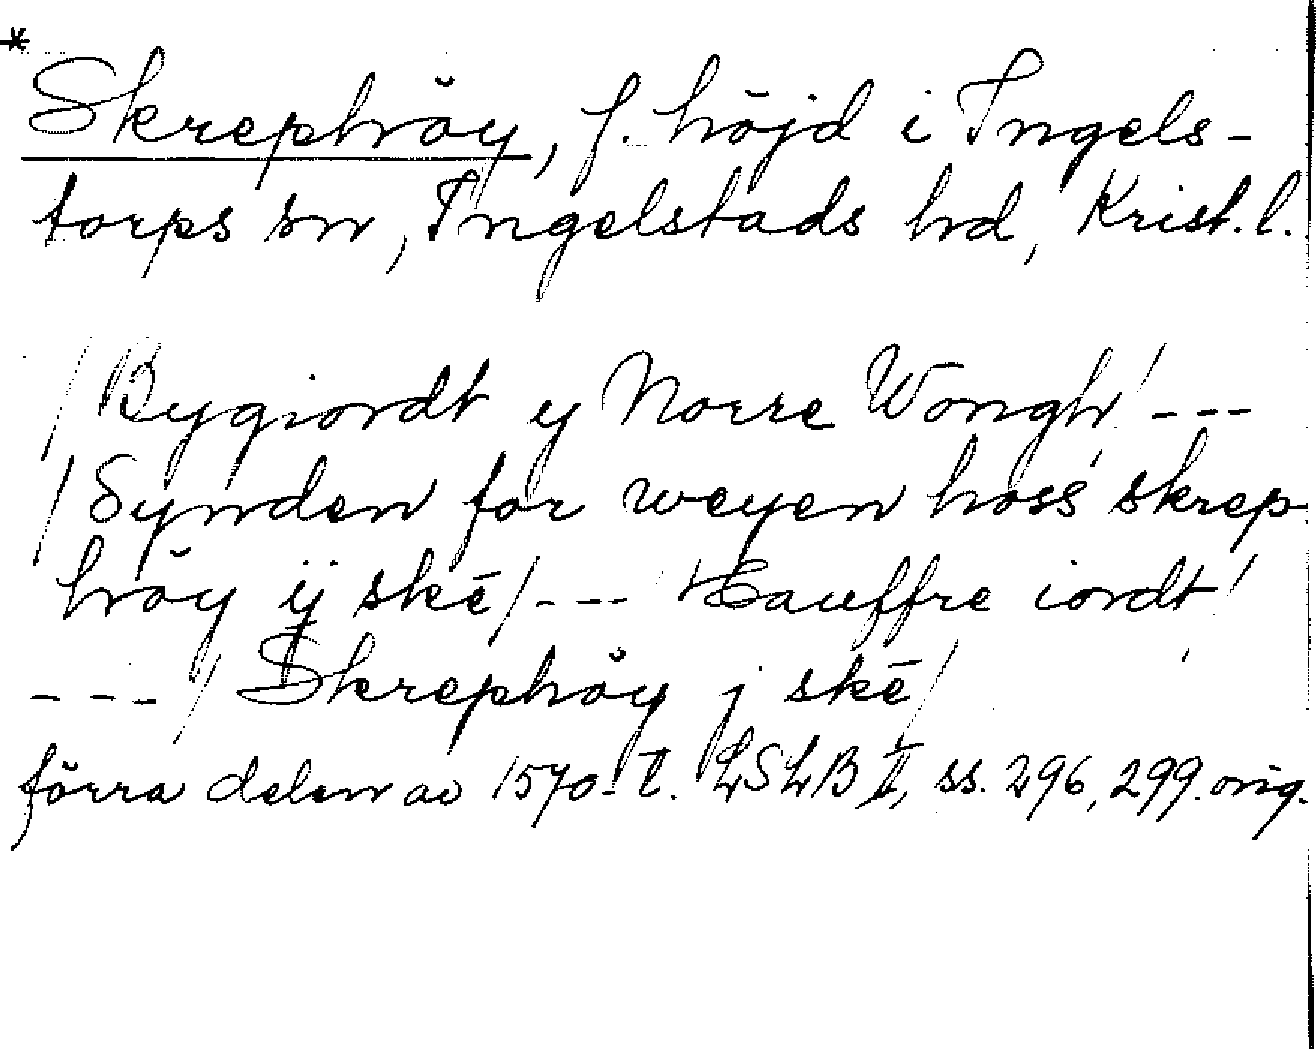 *
Skrephöy, f. höjd i Ingels-
torps sn, Ingelstads hd, Krist. l.
/Bygiordt y Norre Wongh/ ---
/Synden for weyen hoss skrep-
höy ij skē/ --- /Hauffre iordt/
---/ Skrephöy j skē/
förra delen av 1570-t. LSLB II, ss. 296, 299. orig.